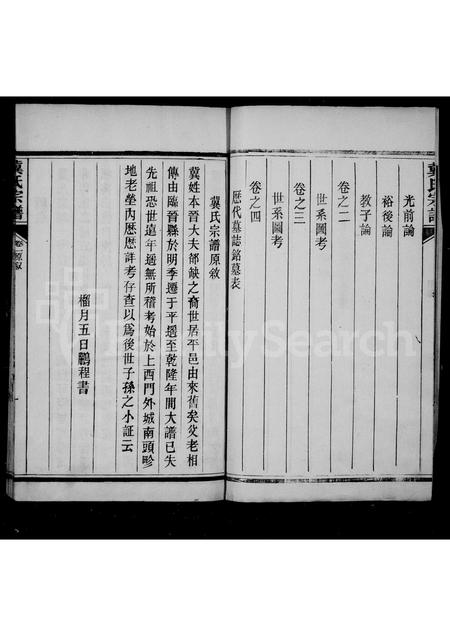 冀氏宗譜
光前論
裕後論
教子論
卷之二
世系圖考
卷之三
世系圖考
卷之四
歷代墓誌銘墓表
冀氏宗譜原敘
冀姓本晉大夫郤缺之裔世居平邑由來舊矣父老相
傳由臨晉縣於明季遷于平遥至乾隆年間大譜已失
先祖恐世遠年遢無所稽考始於上西門外城南頭畛
地老塋內歷歷詳考存查以為後世子孫之小証云
榴月五日鵬程書
冀氏宗譜
FamilySearch